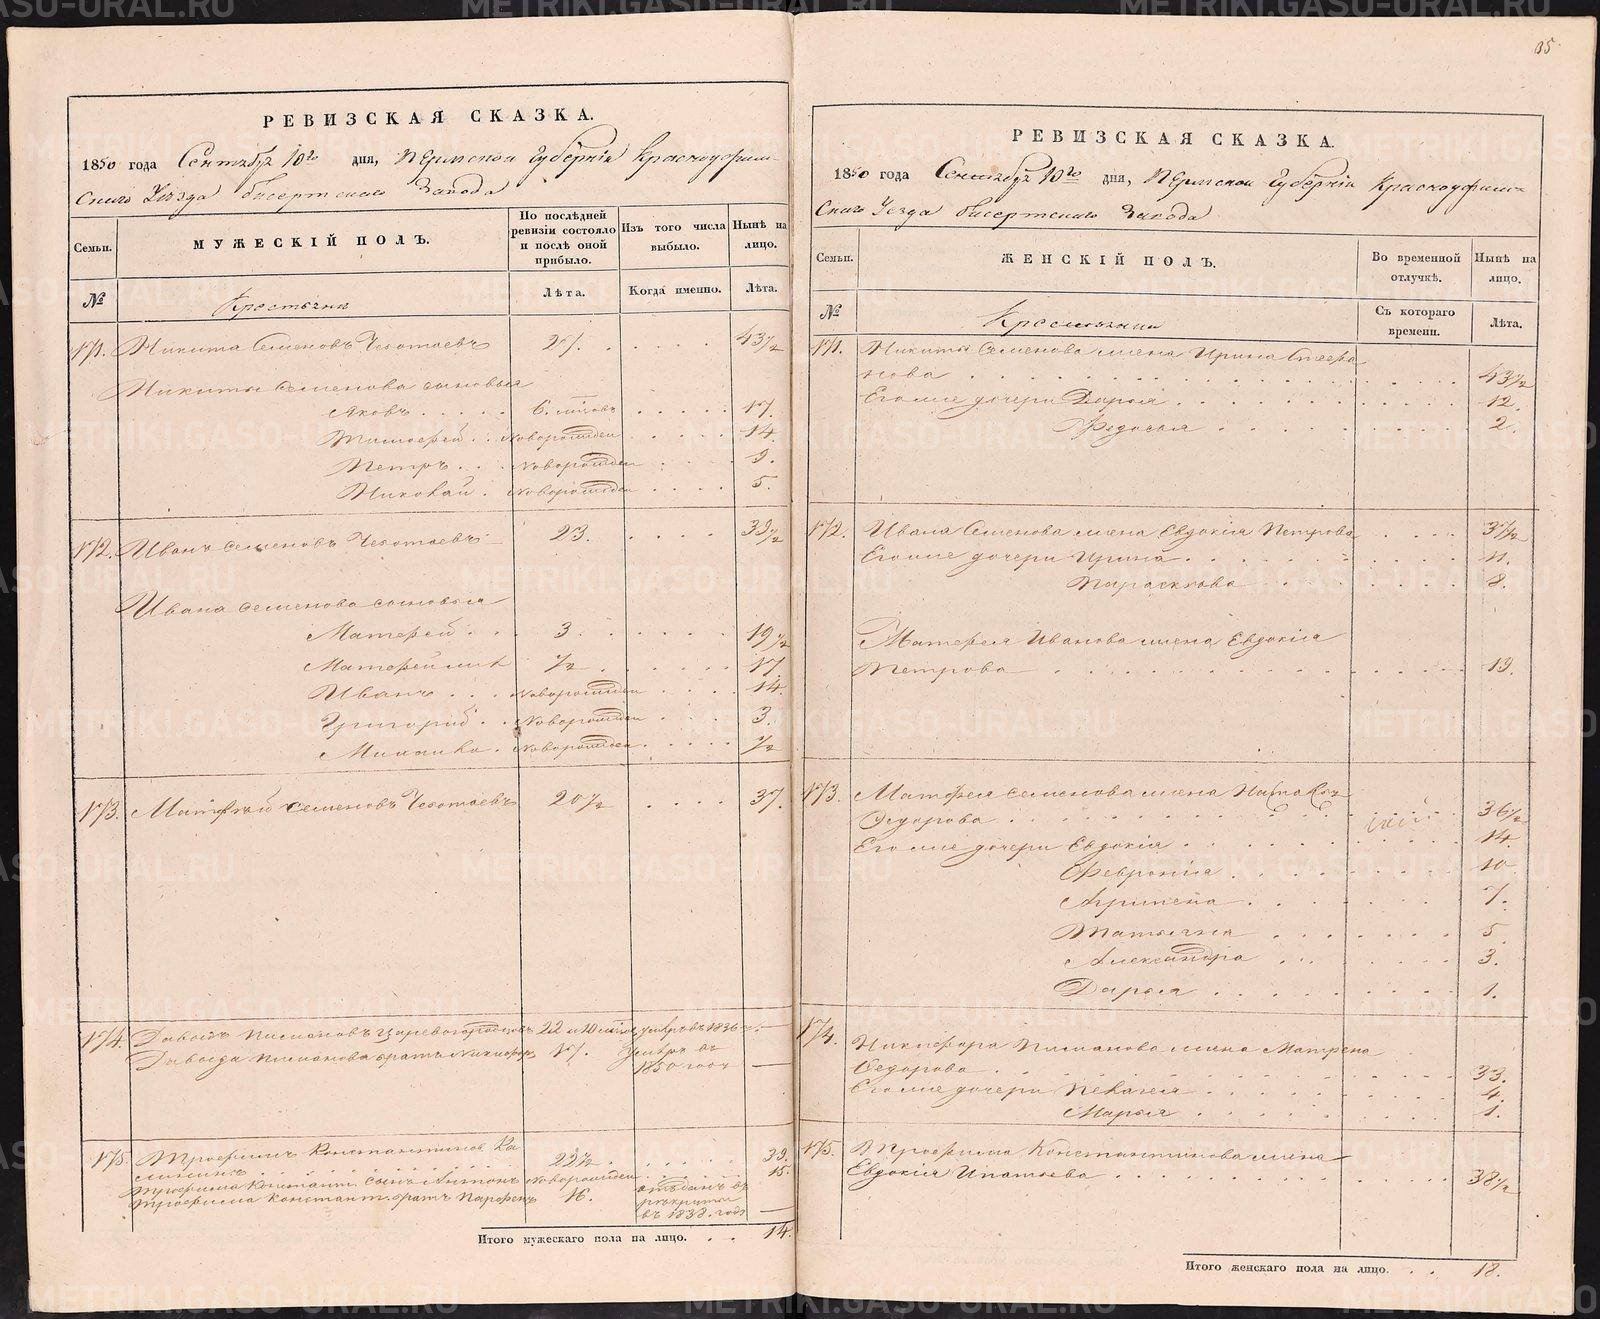 РЕВИЗСКАЯ СКАЗКА.
1850 года Сентября 10го дня, Пермской Губерніи Красноуфим-
скаго Уезда Бисертскаго Завода
Семьи.
МУЖЕСКІЙ ПОЛЪ.
По послѣдней ревизіи состояло и послѣ оной прибыло.
Изъ того числа выбыло.
Нынѣ на лицо.
№
Крестьяни
Лѣта.
Когда именно.
Лѣта.
171. Никита Семеновъ Чеботаевъ 27. 43 1/2
Никиты Семенова сыновья
Яковъ 6. мѣсцовъ 17.
Тимофей новорожден 14.
Петръ новорожден 9.
Николай новорожден 5.
172. Иванъ Семеновъ Чеботаевъ 23. 39 1/2
Ивана Семенова сыновья
Матфей 3. 19 1/2
Матфей же 1/2 17.
Иванъ новорожден 14.
Григорій новорожден 3.
Михаило новорожден 1/2
173. Матфѣй Семеновъ Чеботаевъ 20 1/2 37.
174. Давыдъ Пимановъ Царевогородцовъ 22 и 10 умеръ въ 1836 г. —
Давыда Пиманова братъ Никифоръ 17. умеръ въ
1850 году —
175. Трофимъ Константиновъ Ка
22 1/2 39.
Трофима Констант. сынъ Антонъ новорожден 15.
Трофима Констант. братъ Парфенъ 16. отданъ въ рекруты въ 1838. годъ —
Итого мужескаго пола на лицо. 14.
35
РЕВИЗСКАЯ СКАЗКА.
1850 года Сентября 10го дня, Пермской Губерніи Красноуфим-
скаго Уезда Бисертскаго Завода
Семьи.
ЖЕНСКІЙ ПОЛЪ.
Во временной отлучкѣ.
Нынѣ на лицо.
№
Крестьянки
Съ котораго времени.
Лѣта.
171. Никиты Семенова жена Ирина Степа
нова 43 1/2
Его же дочери Дарья 12.
Федосья 2.
172. Ивана Семенова жена Евдокія Петрова 37 1/2
Его же дочери Ирина 11.
Парасковья 8.
Матфея Иванова жена Евдокія
Петрова 19.
173. Матфея Семенова жена Наталья
Федорова 36 1/2
Его же дочери Евдокія 14.
Февронія 10
Агрипена 7.
Татьяна 5
Александра 3.
Дарья 1.
174. Никифора Пиманова жена Матрена
Федорова 33.
Его же дочери Пелагея 4.
Марья 1.
175. Трофима Константинова жена
Евдокія Ипатьева 38 1/2
Итого женскаго пола на лицо. 18.
METRIKI.GASO-URAL.RU